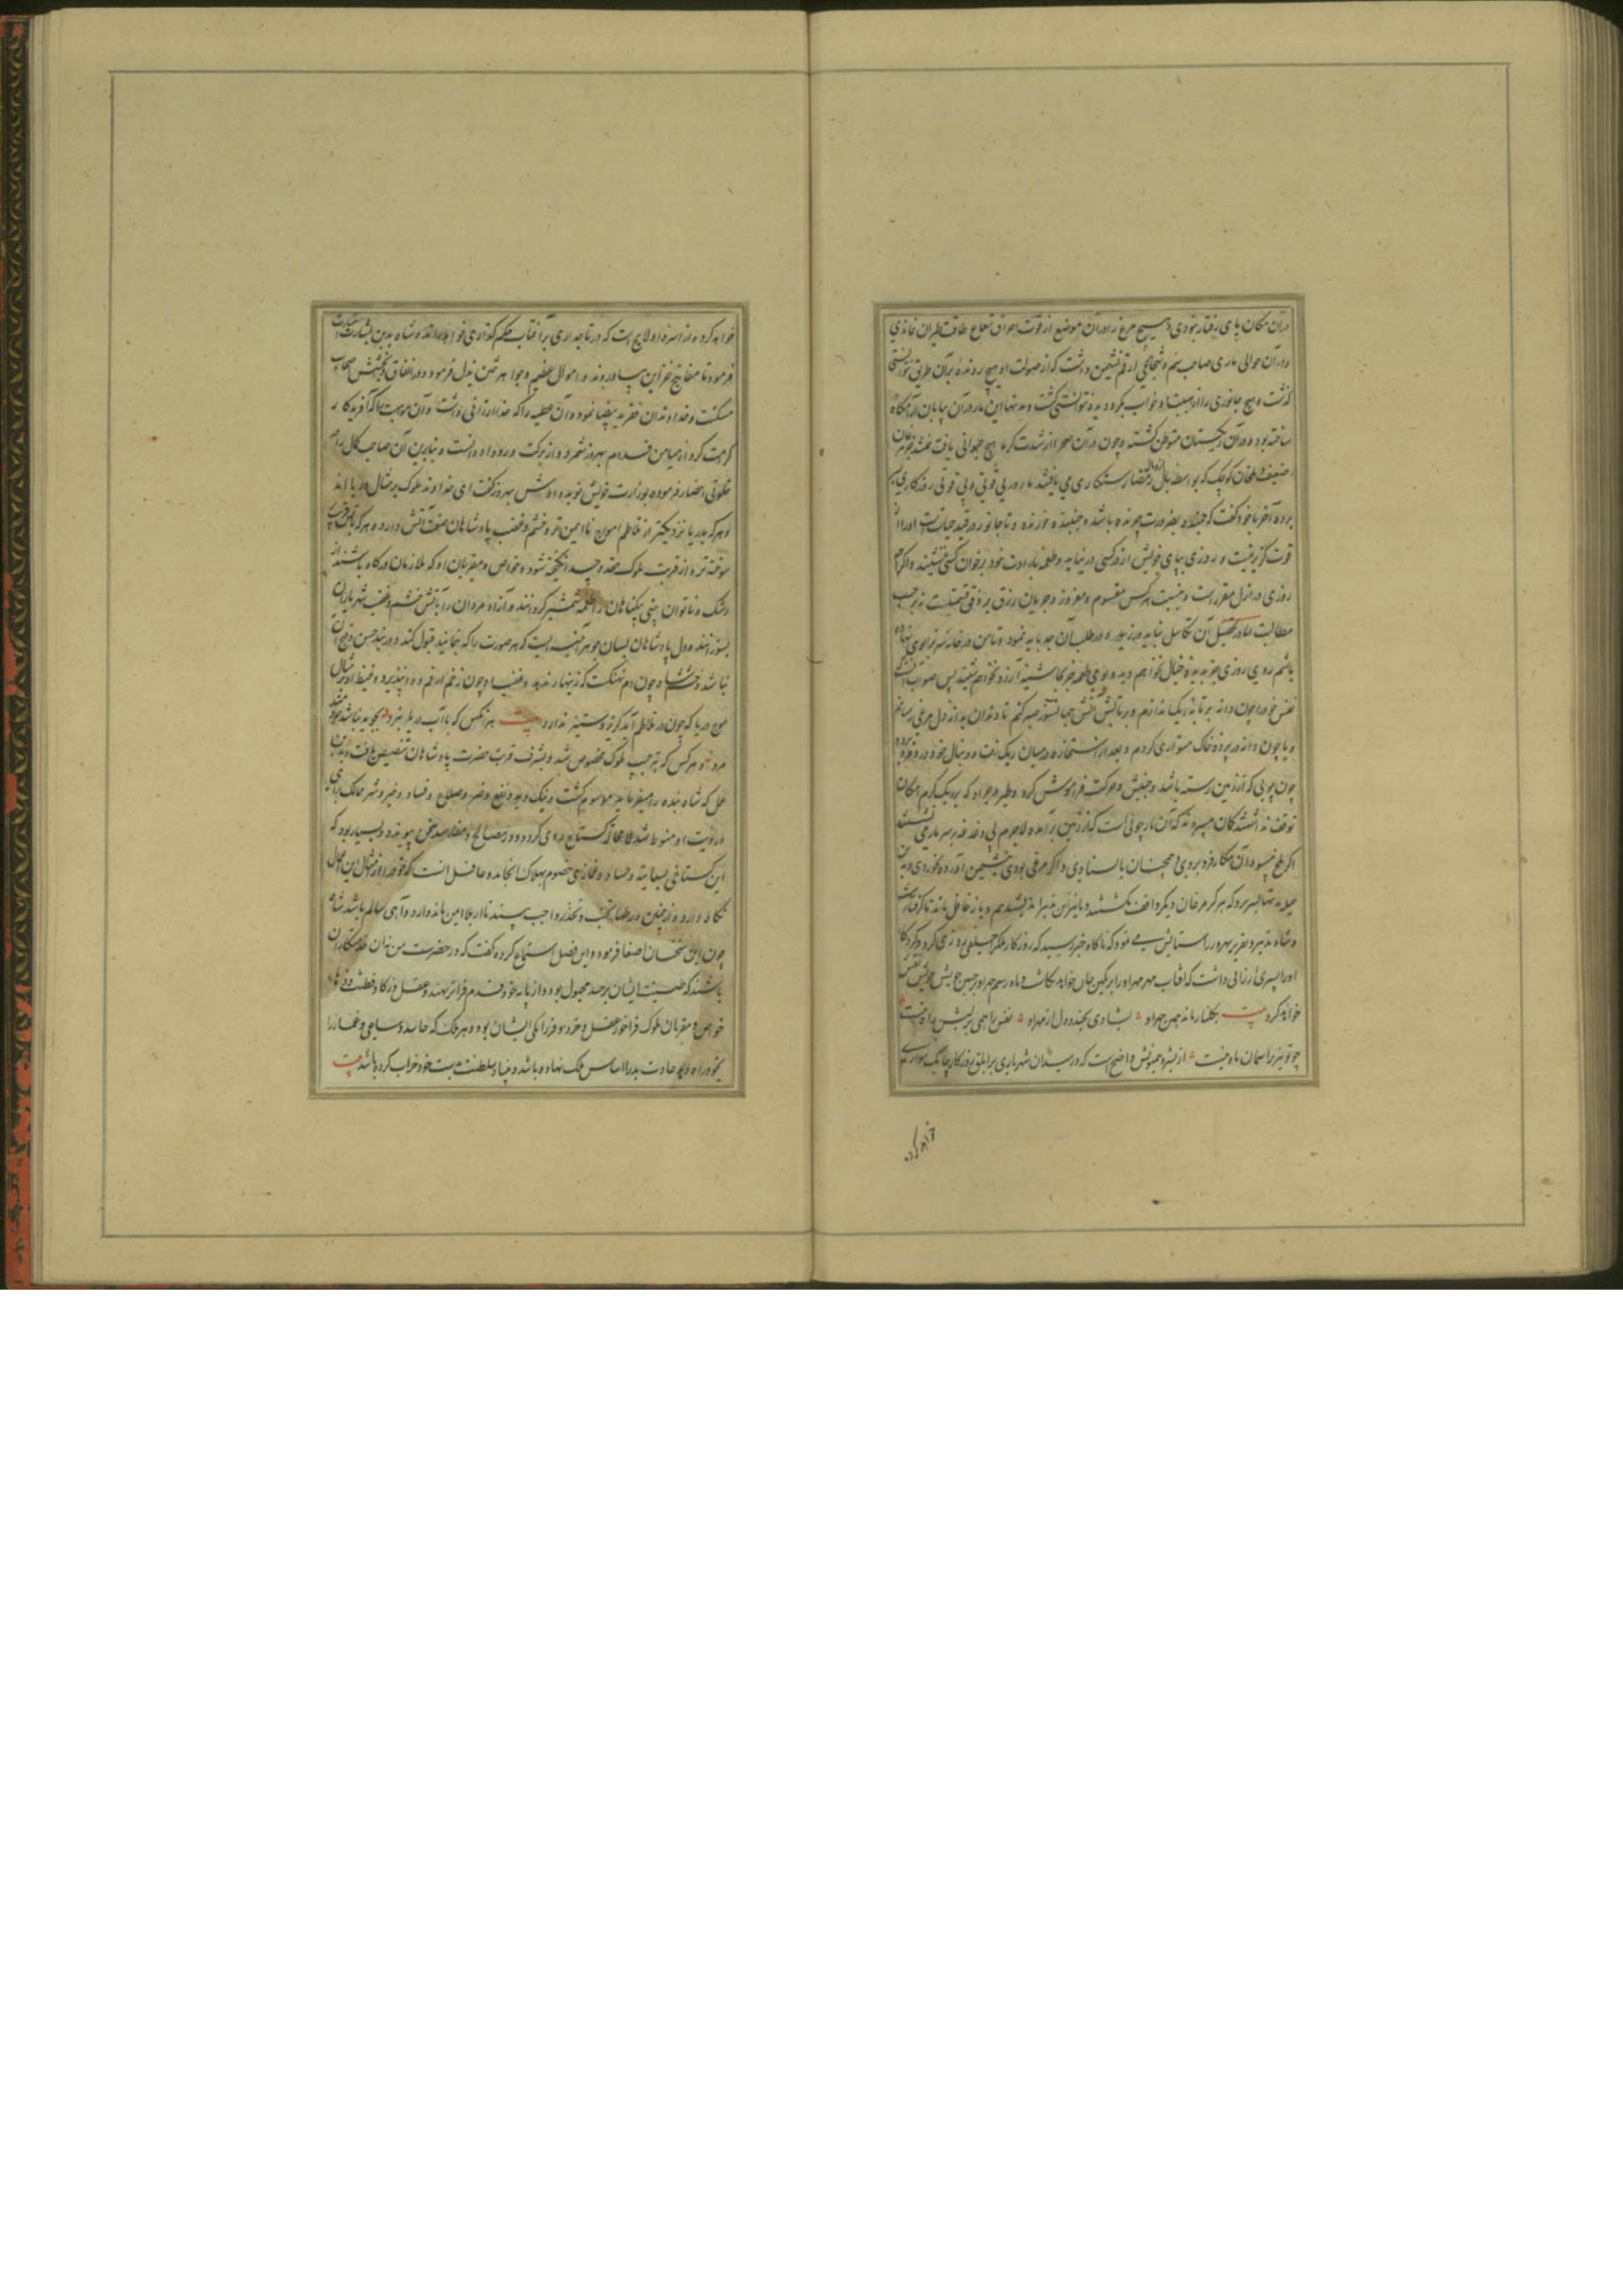 در آن مکان پای رفتار نبودی و هیچ مرغ را در آن موضع از قوت احراق شعاع طاقت طیران نماندی
و در آن حوالی ماری صاحب سم و شجاعی ارقم نشیمن داشت که از صولت او هیچ رونده بر آن طریق نتوانستی
گذشت و هیچ جانوری را از هیبت او خواب بگرد دیده نتوانستی گشت و مدتها این مار در آن بیابان آرامگاه
ساخته بود و در آن ریگستان متوطن گشته و چون در آن صحرا از شدت گرما هیچ حیوانی یافت نمیشد جز مرغان
ضعیف و ملخان کوچک که بواسطه بال از مضار رستگاری می یافتند مار در بی قوتی و بی قوتی روزگاری بسر
برده آخر با خود گفت که جنبنده بضرورت چرنده باشد و جنبنده خورنده و تا جانور در قید حیاتست او را از
قوت گزیر نیست و روزی بپای خویش از در کسی در نیاید و طعمه بارادت خود بر خوان کسی ننشیند و اگرچه
روزی در ازل مقررست و نصیب هر کس مقسوم و مفروز و جویان رزق بر وفق قسمتست نه بر حسب
مطالبت اما در تحصیل آن تکاسل نباید ورزید و در طلب آن جد باید نمود و تا من در خانه سر بزانوی نهاده
باشم روی روزی جز بدیده خیال نخواهم دید و بوی طعمه جز بمشام آرزو نخواهم شنید پس صواب آنست که
نفس خود را چون دانه بر تابه ریگ اندازم و بر تابش آتش جهانسوز صبر کنم تا دندان بدان دل مرغی رسانم
و یا چون دانه در پرده خاک متواری گردم و بعد از استخاره در میان ریگ رفت و دنبال خود در و فرو برده
چون چوبی که از زمین رسته باشد و جنبش و حرکت فراموش کرد و طیر و جراد که بر ریگ گرم امکان
توقف نداشتند گمان میبردند که آن مار چوبی است که از زمین بر آمده لاجرم بی دغدغه بر سر مار می نشستند
اگر ملخ میبود آن مکار فرو بردی و همچنان بایستادی و اگر مرغی بودی بنشیمن آورده بخوردی و بدین
حیله مدتها بسر برد که هرگز مرغان دیگر واقف نگشتند و بدین تدبیر
و شاه تدبیر و تقریر بهروز را ستایش می نمود که ناگاه خبر رسید که روزگار
او را پسری ارزانی داشت که آفتاب مهر مهر او را بر نگین جان خواهد نگاشت و ماه رسم چهر او بر جبین خویش نقش
خواهد کرد بیت بگلنار ماند همی چهر او بشادی بخندد دل از مهر او
چو تو نیز بر آسمان ماه نیست از بشره همیونش واضح است که در میدان شهریاری بر ابلق روزگار چابک سواری
خواهد کرد
خواهد کرد و از اسره او لایح است که در تاجداری بر آفتاب حکم گذاری خواهد راند و شاه بدین بشارت اشارت
فرمود تا مفاتیح خزاین بیاوردند و اموال عظیم و جواهر ثمین بذل فرمود و در انفاق و بخشش اصحاب
مسکنت و خداوندان فقر ید بیضا نمود و آن عطیه را که خدا ارزانی داشت و آن موهبت را که آفریدگار
کرامت کرد از میامن قدوم بهروز شمرد و از برکت ورود او دانست و بنابرین آن صاحب کمال را
احضار فرموده بوزارت خویش نوید دادش بهروز گفت ای خداوند ملوک بر مثال دریا اند
و هر که بدریا نزدیکتر از تلاطم امواج ناایمن تر و خشم و غضب پادشاهان صفت آتش دارد و هر که بآتش قریب
سوخته تر و از قربت ملوک حقد و حسد انگیخته شود و خواص و مقربان او که ملازمان درگاه باشند از
رشک و ناتوان بینی بیگناهان را طعمه شمشیر گردانند و آزاده مردان را بآتش خشم و غضب شهریاران
بسوزانند و دل پادشاهان بسان جوهر آینه ایست که هر صورت را که بنمایند قبول کند و در بند حسن و قبح آن
نباشد و خشم شاه چون دم نهنگست که زنهار ندهد و غضب او چون زخم ارقم دوا نپذیرد و غیظ او بر مثال
موج دریا که چون در تلاطم آید گریز و ستیز ندارد بیت هر آنکس که با آب دریا نبرد بجوید نباشد خردمند
مرد و هر کس که بترحیب ملوک مخصوص شد و بشرف قربت حضرت پادشاهان تخصیص یافت و بدین
عمل که شاه بنده را میفرماید موسوم گشت و نیک و بد و نفع و ضر و صلاح و فساد و خیر و شر ممالک برای
و رویت او منوط شد گستاخ روی گردد و در مصالح و مفاسد سخن پیوندد و بسیار بود که
این گستاخی بسعایت حساد و غمازی خصوم بهلاک انجامد و عاقل آنست که خود را از مثال این اعمال
نگاه دارد و از چنین ورطها تجنب و تحذر واجب بیند تا از بلا ایمن ماند و از دواهی سالم باشد شاه
چون این سخنان اصغا فرمود و این فضل استماع کرده گفت که در حضرت من ندان خدمتکاران
باشند که طینت ایشان بر حسد مجبول بود و از پایه خود قدم فراتر نهند و عقل و ذکا و فطنت و دها
خواص و مقربان ملوک فراخور عقل و خرد و فرزانگی ایشان بود و هر ملک که حاسد و ساعی و غماز را
بخود راه دهد عادت بد را اساس ملک نهاده باشد و بنیاد سلطنت بدست خود خراب کرده باشد بیت